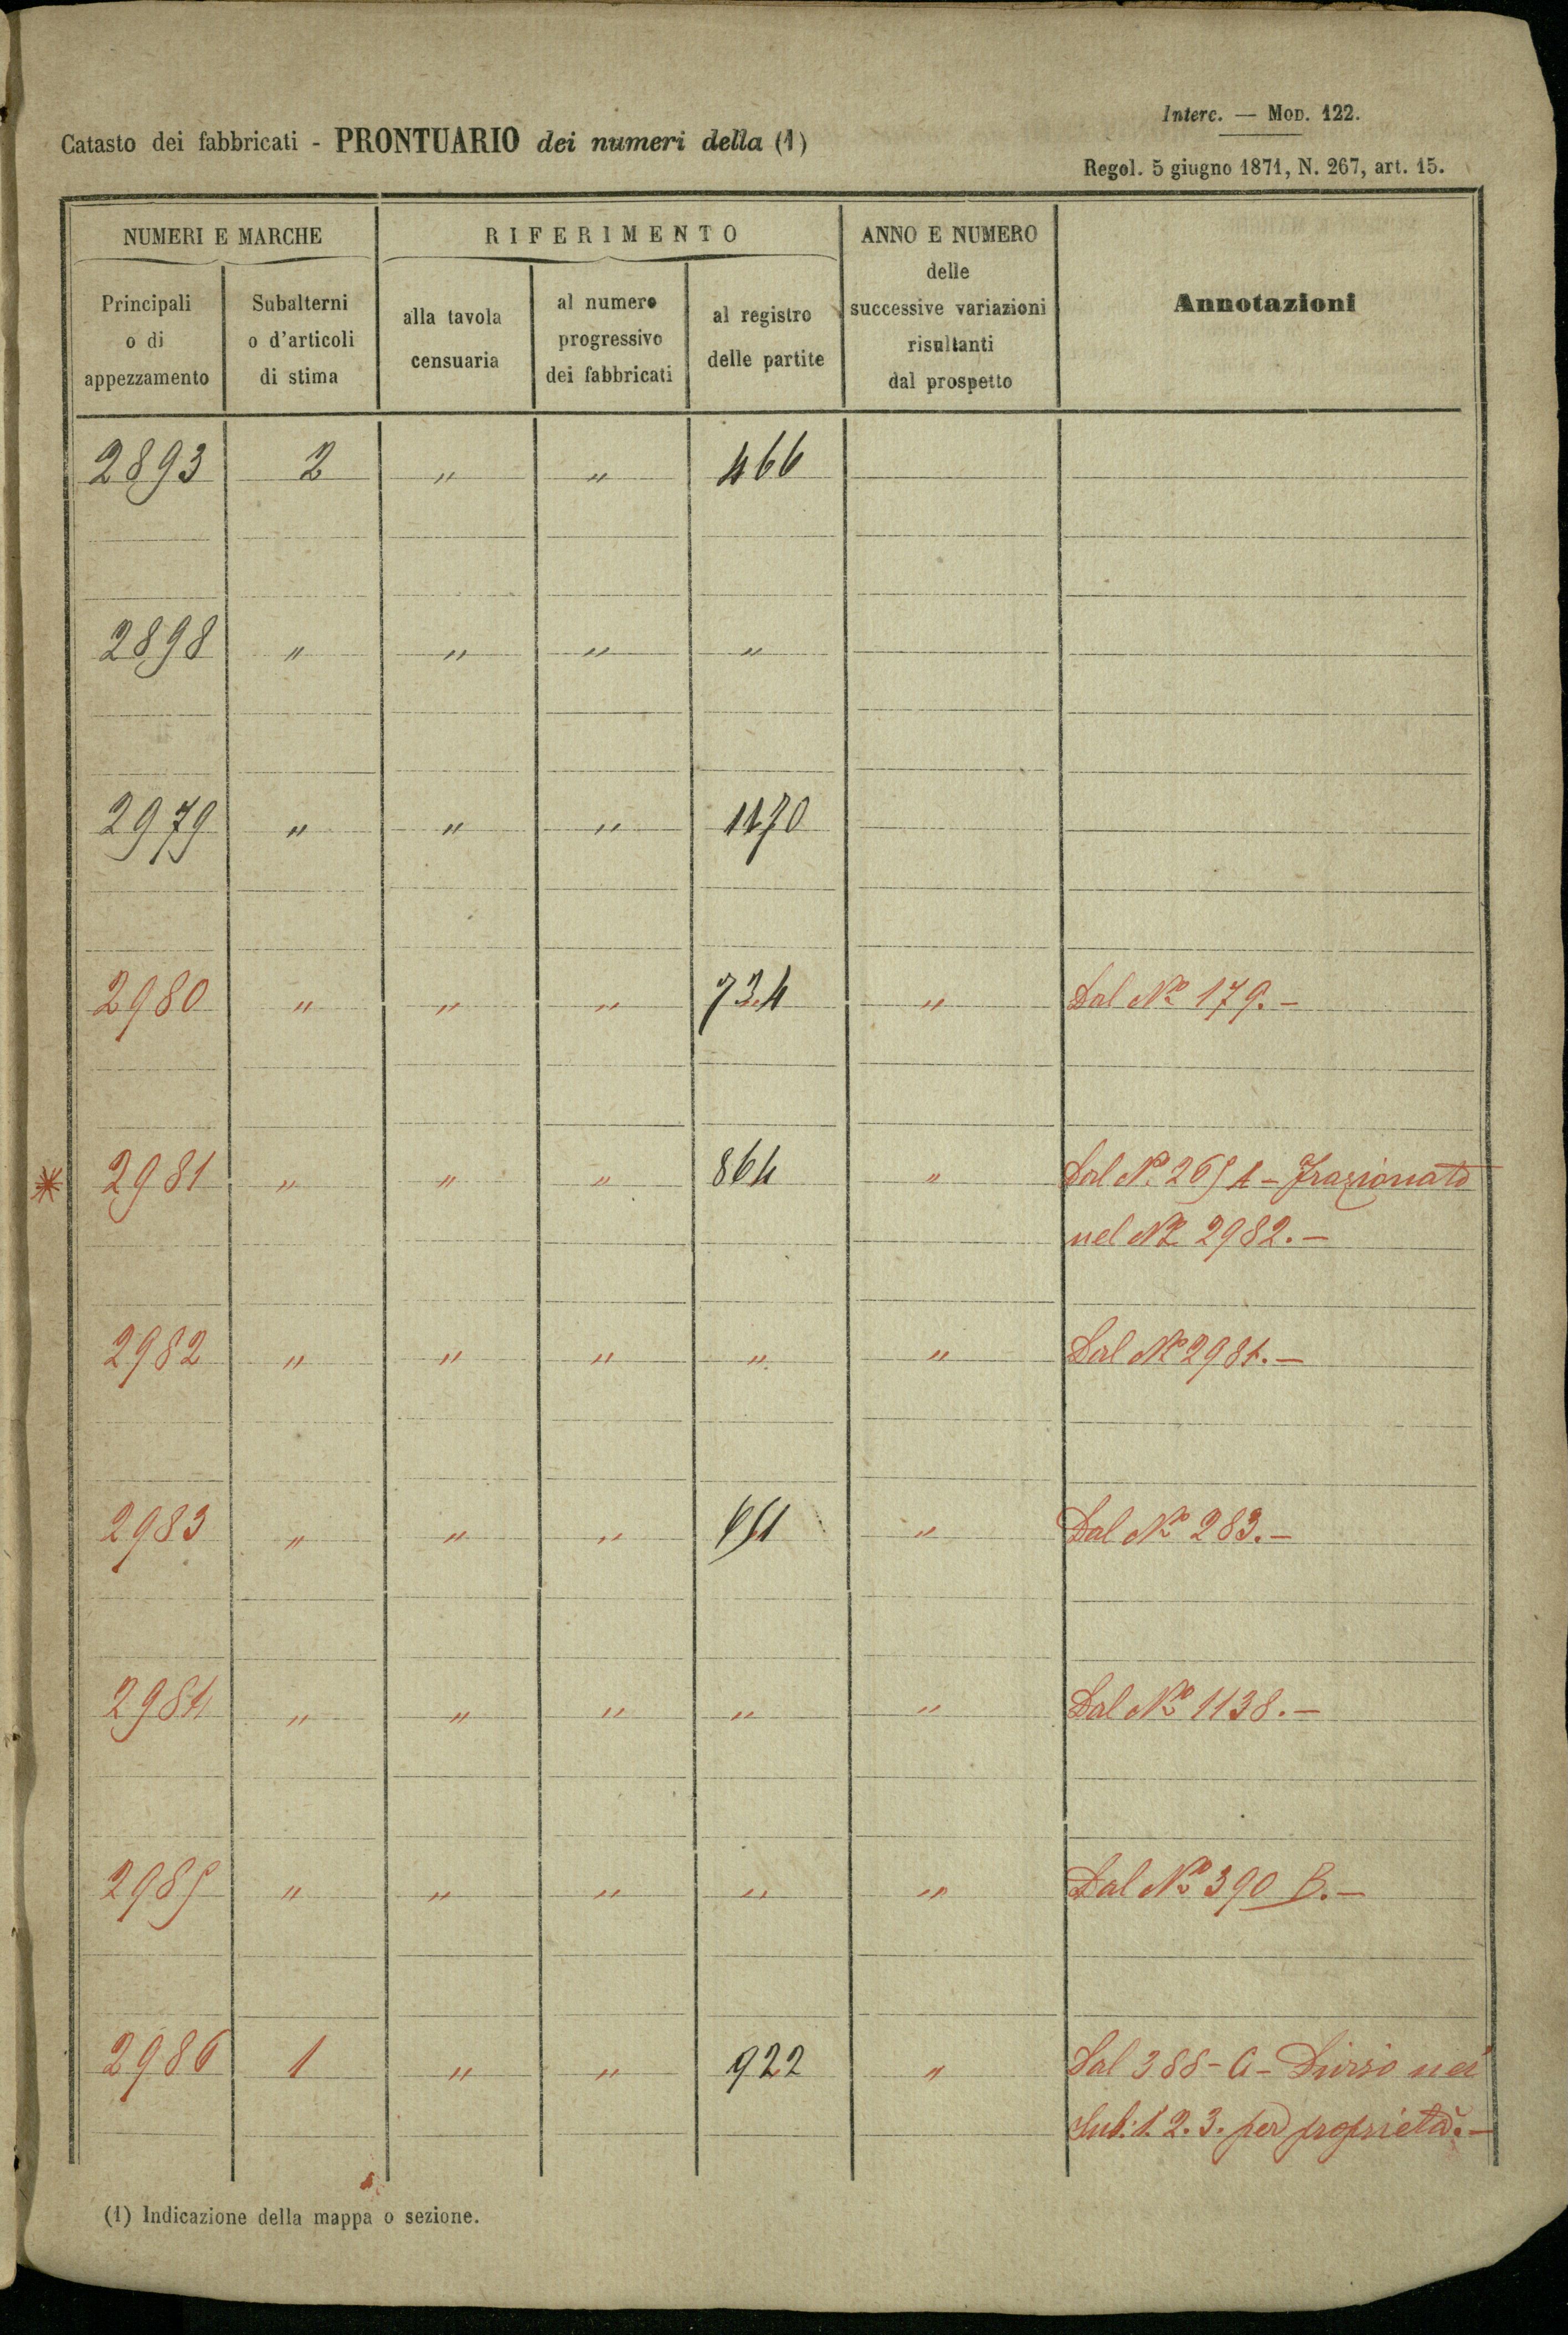 Interc. — Mod. 122.
Catasto dei fabbricati - PRONTUARIO dei numeri della (1)
Regol. 5 giugno 1871, N. 267, art. 15.
NUMERI E MARCHE RIFERIMENTO ANNO E NUMERO delle successive variazioni risultanti dal prospetto Annotazioni
Principali o di appezzamento Subalterni o d'articoli di stima alla tavola censuaria al numero progressivo dei fabbricati al registro delle partite
2893 2 " " 466
2898 " " " "
2979 " " " 1170
2980 " " " 734 " Dal N.º 179. -
* 2981 " " " 864 " Dal N.º 265 A - Frazionato
nel N.º 2982. -
2982 " " " " " Dal N.º 2981. -
2983 " " " 651 " Dal N.º 283. -
2984 " " " " " Dal N.º 1138. -
2985 " " " " " Dal N.º 390 B. -
2986 1 " " 922 " Dal 388 - A - Diviso nei
Sub: 1. 2. 3. per proprietà. -
(1) Indicazione della mappa o sezione.